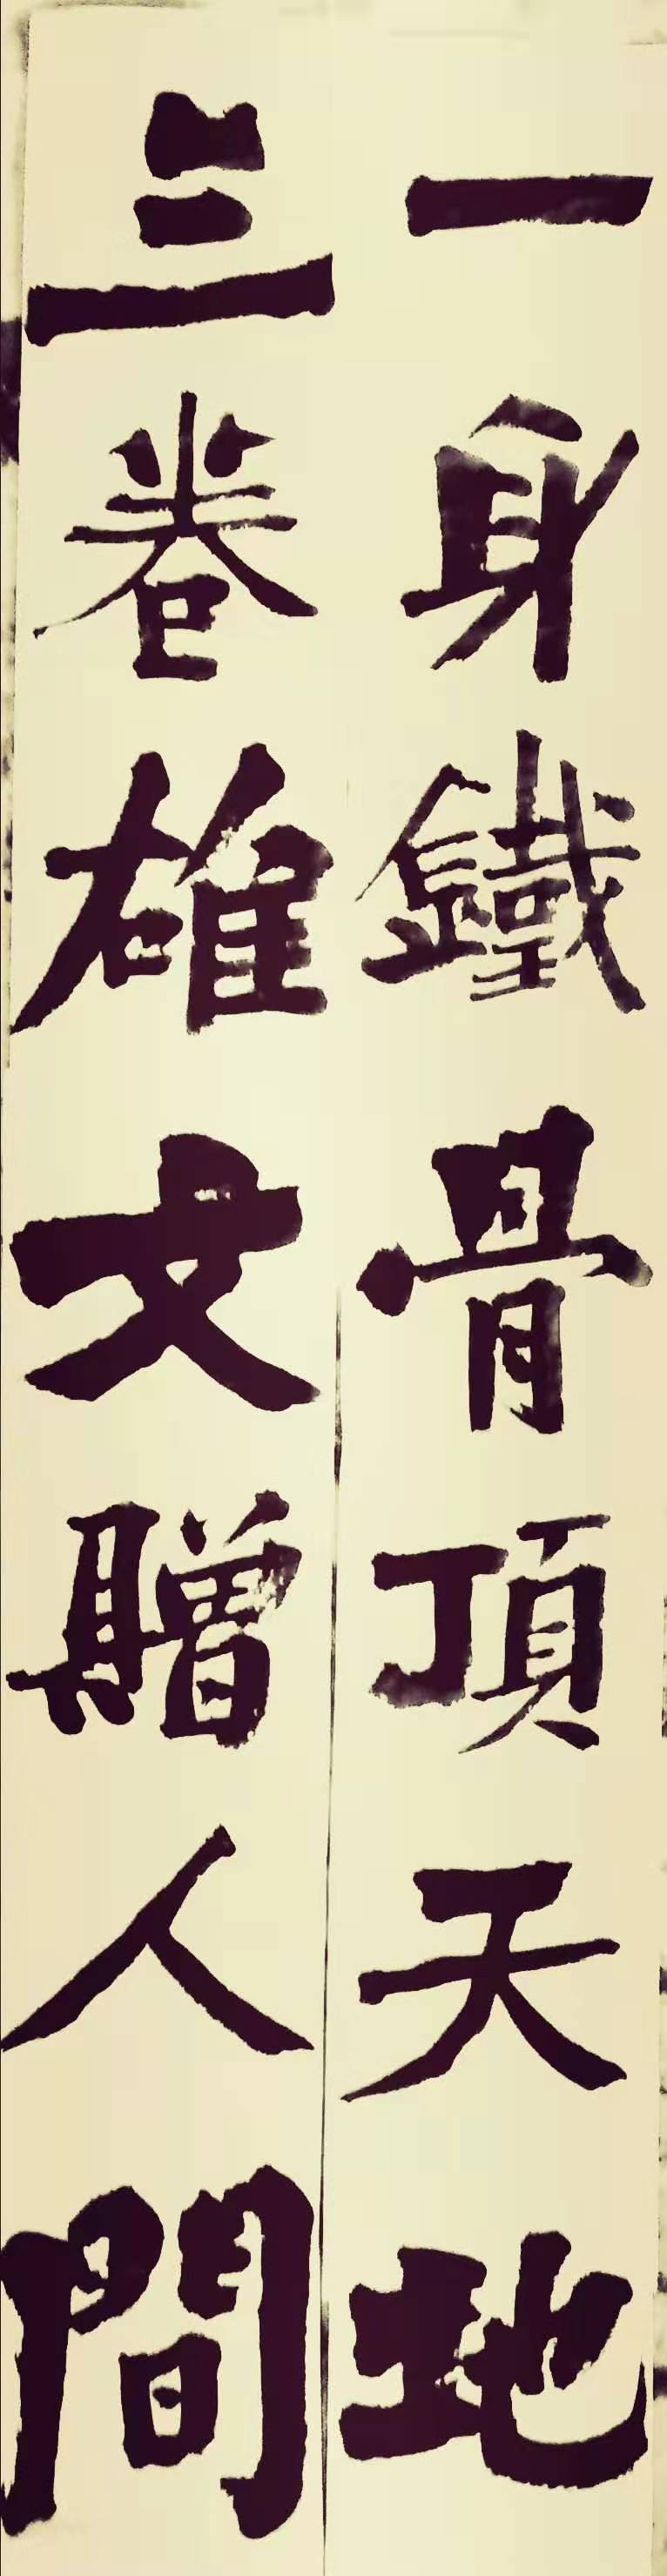 一身鐵骨頂天地
三卷雄文贈人間